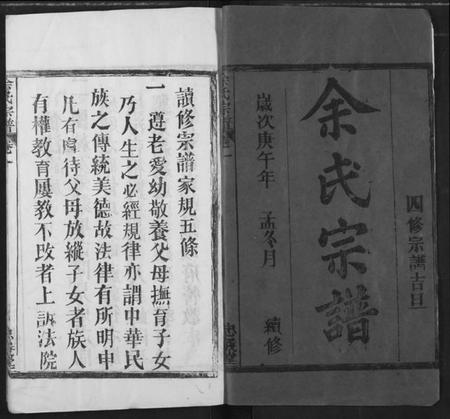 四修宗譜吉旦
余氏宗譜
歲次庚午年 孟冬月 續修
余氏宗譜 卷一
讀修宗譜家規五條
一遵老愛幼敬養父母撫育子女
乃人生之必經規律亦謂中華民
族之傳統美德故法律有所明申
凡有虐待父母放縱子女者族人
有權教育屢教不改者上訴法院
余氏宗譜 卷一